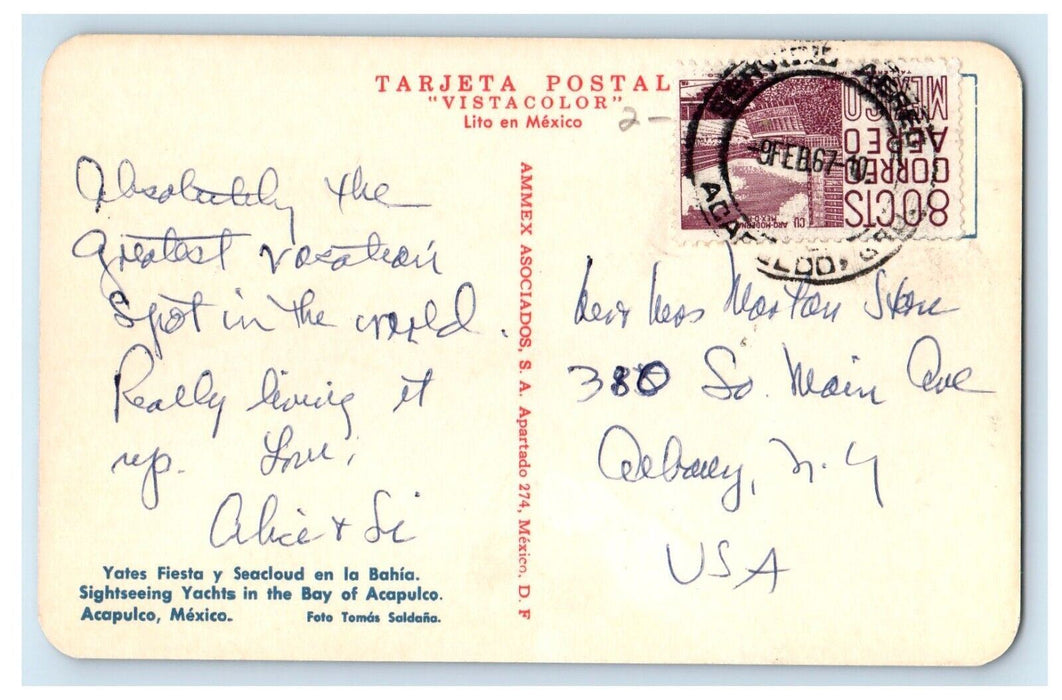 TARJETA POSTAL
"VISTACOLOR"
Lito en México
2-
Absolutely the
greatest vacation
spot in the world.
Really living it
up. Love,
Alice & Si
Yates Fiesta y Seacloud en la Bahía.
Sightseeing Yachts in the Bay of Acapulco.
Acapulco, México. Foto Tomás Saldaña.
AMMEX ASOCIADOS, S. A. Apartado 274, México, D. F
SERVICIO AEREO
-9FEB.67-10
ACAPULCO, GRO.
MEXICO
AEREO
CORREO
80CTS
CU
ARQ·MODERNA
MEX·D·F
Mr & Mrs Morton Stern
380 So. Main Ave
Albany, N.Y
USA